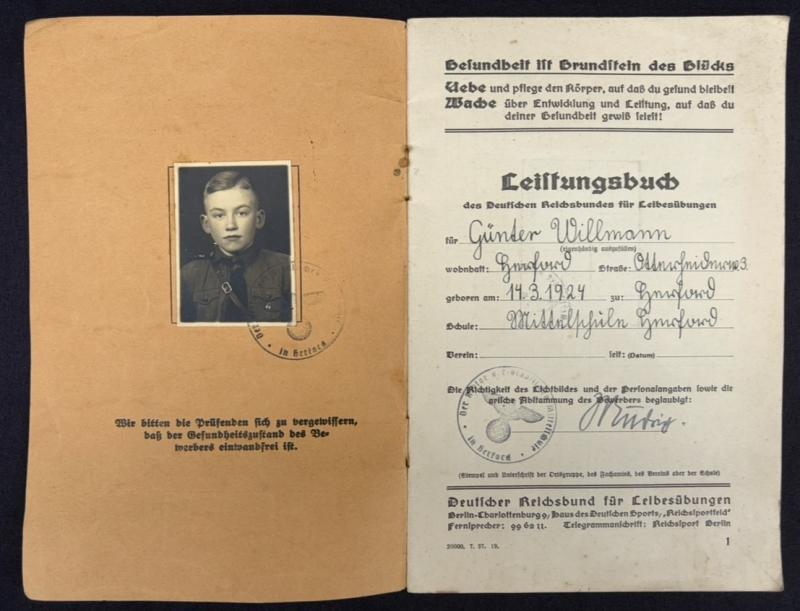 Wir bitten die Prüfenden sich zu vergewissern,
daß der Gesundheitszustand des Be-
werbers einwandfrei ist.
in Herford
Gesundheit ist Grundstein des Glücks
Uebe und pflege den Körper, auf daß du gesund bleibest
Wache über Entwicklung und Leistung, auf daß du
deiner Gesundheit gewiß seiest!
Leistungsbuch
des Deutschen Reichsbundes für Leibesübungen
für Günter Willmann
(eigenhändig ausgefüllt)
wohnhaft: Herford Straße: 3.
geboren am: 14.3.1924 zu: Herford
Schule: Mittelschule Herford
Verein: seit: (Datum)
Die Richtigkeit des Lichtbildes und der Personalangaben sowie die
arische Abstammung des Bewerbers beglaubigt:
in Herford
(Stempel und Unterschrift der Ortsgruppe, des Fachamts, des Vereins oder der Schule)
Deutscher Reichsbund für Leibesübungen
Berlin-Charlottenburg 9, Haus des Deutschen Sports, „Reichsportfeld“
Fernsprecher: 99 62 11. Telegrammanschrift: Reichsport Berlin
20000. 7. 37. 19.
1